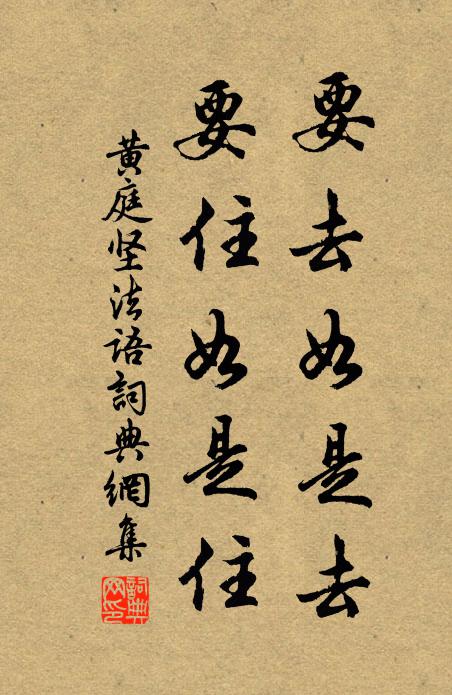 要去如是去
要住如是住
黄庭坚法语詞典網集
詞典
网印